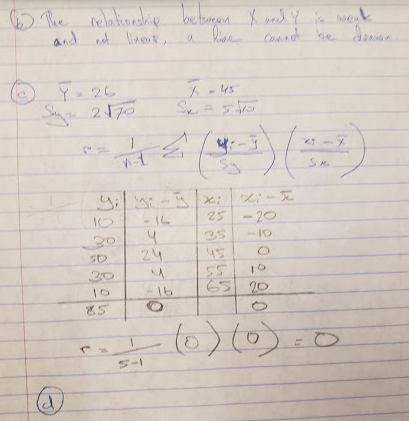 (b) The relationship between X and Y is weak
and not linear, a line cannot be drawn.
(c) Ȳ = 26 X̄ = 45
Sy = 2√70 Sx = 5√10
r = 1/(n-1) Σ ((yi - ȳ)/Sy) ((xi - x̄)/Sx)
yi | yi - ȳ | xi | xi - x̄
10 | -16 | 25 | -20
30 | 4 | 35 | -10
50 | 24 | 45 | 0
30 | 4 | 55 | 10
10 | -16 | 65 | 20
85 | 0 | | 0
r = 1/(5-1) (0) (0) = 0
(d)